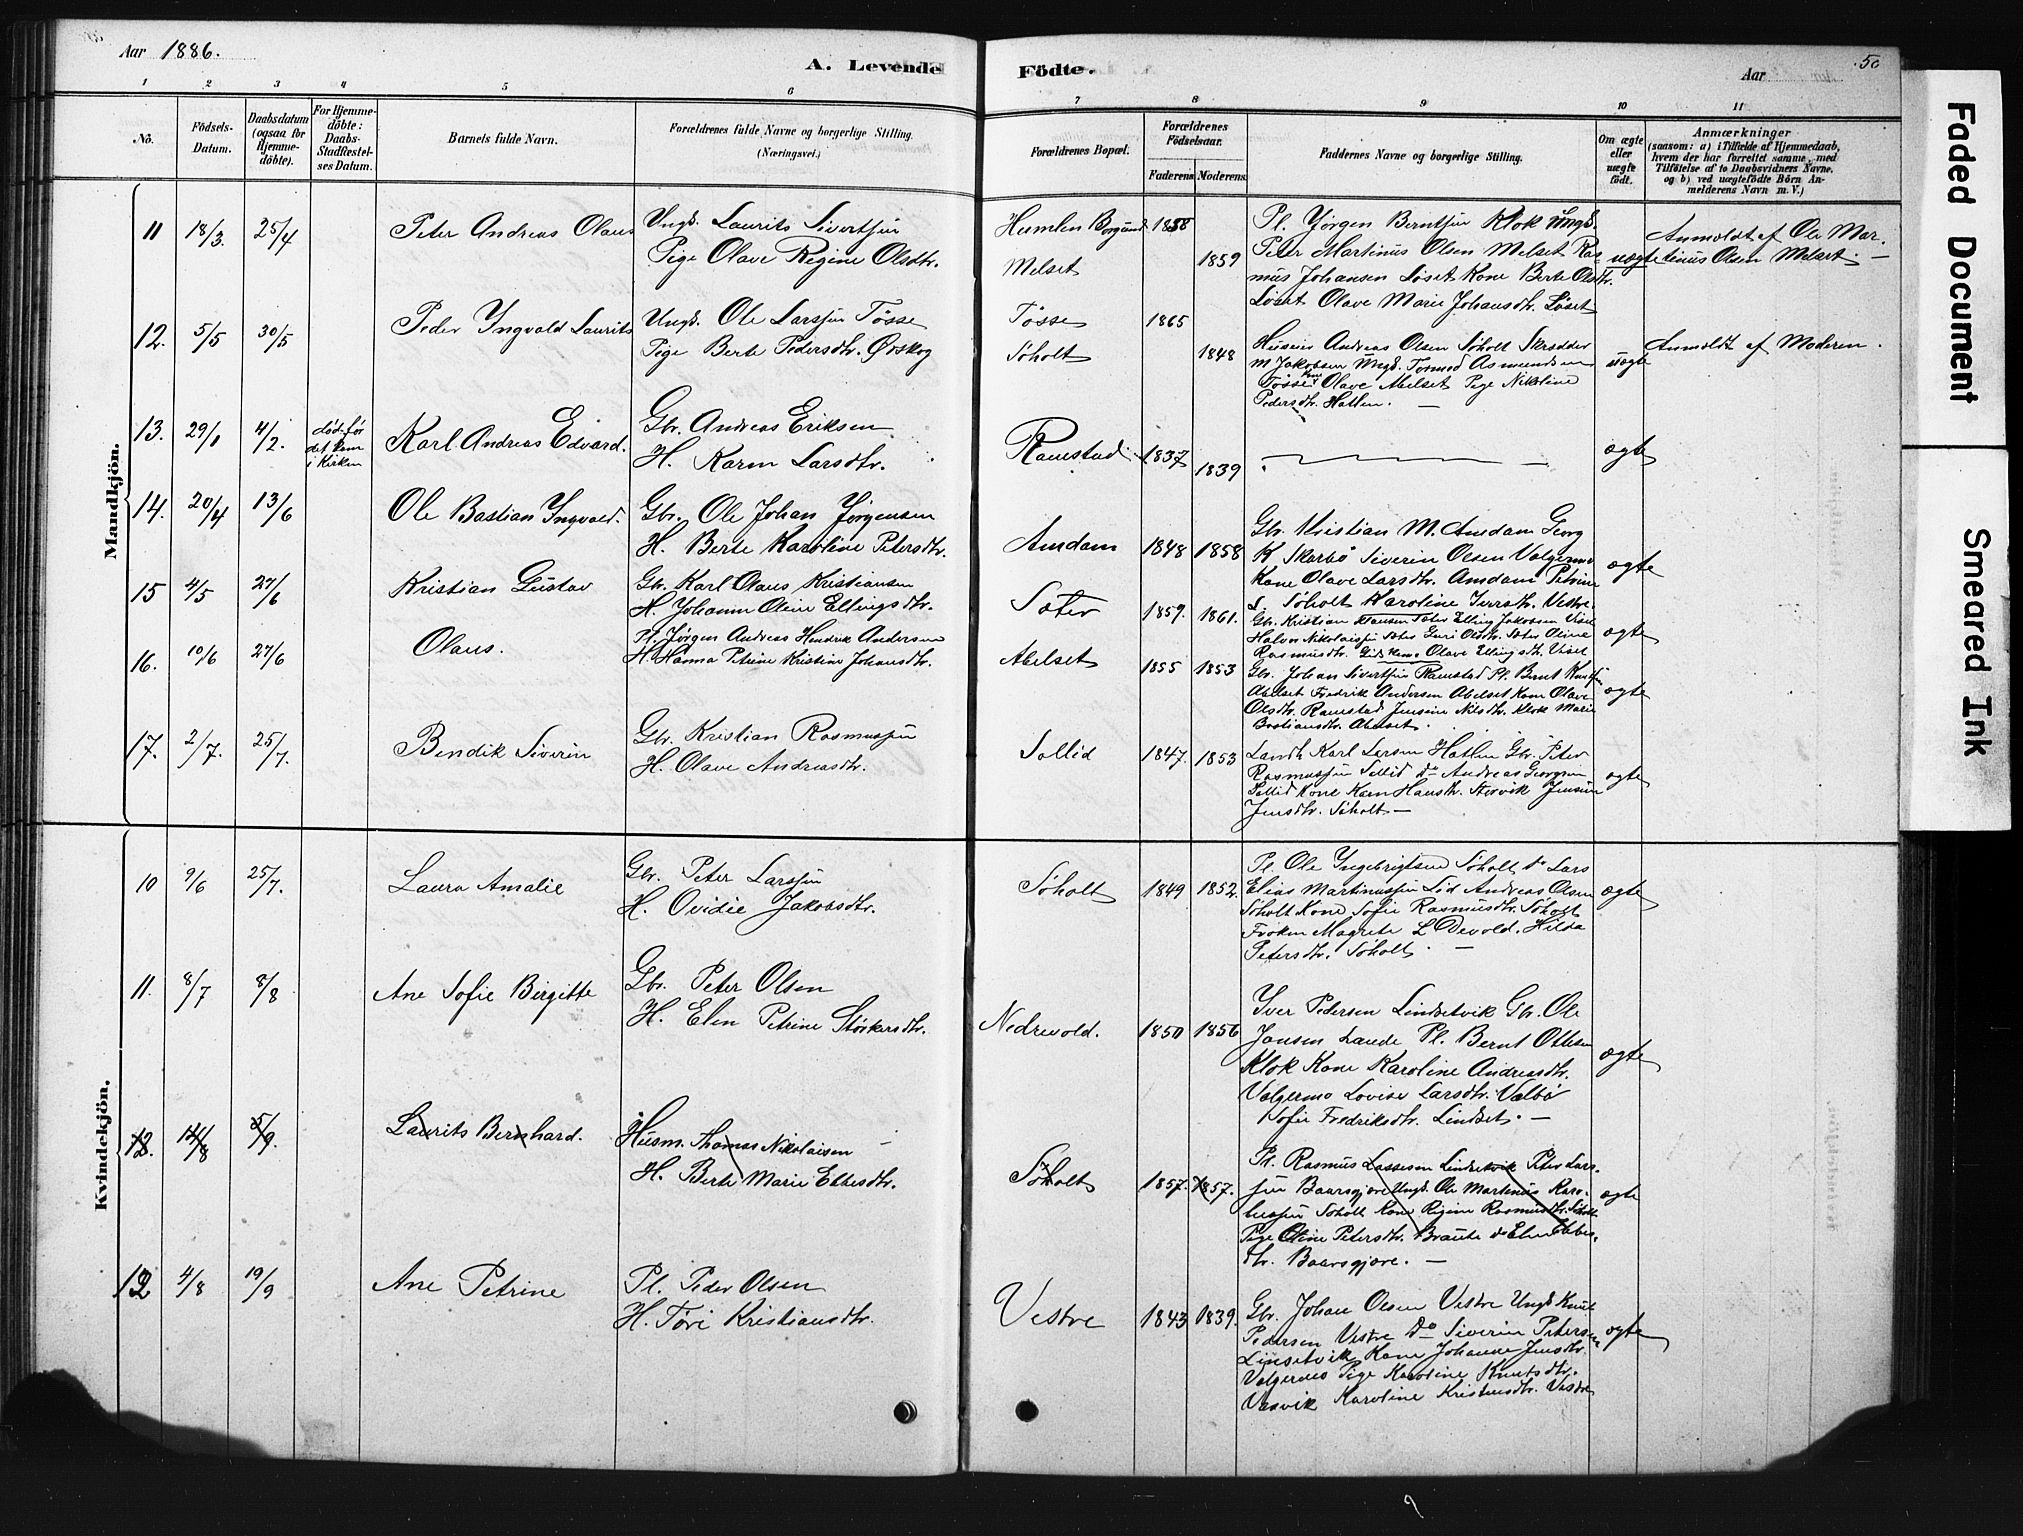 Aar 1886.
A. Levende Födte.
Aar
50
1 2 3 4 5 6 7 8 9 10 11
No.
Födsels-Datum.
Daabsdatum (ogsaa for Hjemme-döbte).
For Hjemme-döbte: Daabs-Stadfæstel-ses Datum.
Barnets fulde Navn.
Forældrenes fulde Navne og borgerlige Stilling. (Næringsvei.)
Forældrenes Bopæl.
Forældrenes Födselsaar.
Faderens Moderens.
Faddernes Navne og borgerlige Stilling.
Om ægte eller uægte födt.
Anmærkninger
(saasom: a) i Tilfælde af Hjemmedaab, hvem der har forrettet samme, med Tilföielse af to Daabsvidners Navne. og b) ved uægtefödte Börn An-melderens Navn m. V.)
Mandkjön.
11 18/3. 25/4 Peter Andreas Olaus
Ungk. Laurits Sivertsen
Pige Olave Regine Olsdtr.
Humlen Borgund 1858
Melset 1859
Pl. Jörgen Berntsen Klok Ungk.
Peter Martinus Olsen Melset Ras
mus Johansen Löset Kone Berte Olsdtr.
Löset Olave Marie Johansdtr. Löset
uægte
Anmeldt af Ole Mar-
tinus Olsen Melset. —
12. 5/5 30/5 Peder Yngvald Laurits
Ungk. Ole Larssen Tösse
Pige Berte Pedersdtr. Örskog
Tösse 1865
Söholt 1848
Husm Andreas Olsen Söholt Skrædder
M Jakobsen Ungk. Tormod Asmundsen
Tösse Kone Olave Abelset Pige Nikoline
Pedersdtr. Hatlen. —
uægte
Anmeldt af Moderen.
13. 29/1 4/2. död för
det kom
i Kirken
Karl Andreas Edvard.
Gbr. Andreas Eriksen
H. Karen Larsdtr.
Ramstad 1837 1839
ægte
14. 20/4 13/6 Ole Bastian Yngvald.
Gbr. Ole Johan Jörgensen
H. Berte Karoline Petersdtr.
Amdam 1848 1858
Gbr. Kristian M. Amdam Georg
K Skarbö Siverin Olsen Valgermo
Kone Olave Larsdtr. Amdam Petrine
L. Söholt Karoline Iversdtr. Vestre.
ægte
15 4/5 27/6 Kristian Gustav
Gbr. Karl Olaus Kristiansen
H. Johanne Oline Ellingsdtr.
Sæter 1859. 1861.
Gbr. Kristian Hansen Sæter Elling Jakobsen Viset
Halvor Nikolaisen Sæter Guri Olsdtr. Sæter Oline
Rasmusdtr. Kone Olave Ellingsdtr. Viset
ægte
16. 10/6 27/6 Olaus.
Pl. Jörgen Andreas Hendrik Andersen
H. Hanna Petrine Kristine Johansdtr.
Abelset 1855 1853
Gbr. Johan Sivertsen Ramstad Pl. Bernt Knutsen
Abelset Fredrik Andersen Abelset Kone Olave
Olsdtr. Ramstad Jensine Nilsdtr. Klok Marie
Bastiansdtr. Abelset.
ægte
17. 2/7. 25/7. Bendik Siverin
Gbr. Kristian Rasmussen
H. Olave Andreasdtr.
Sollid 1847. 1853
Landh. Karl Larsen Hatlen Gbr. Peter
Rasmussen Sollid do Andreas Georgsen
Sollid Kone Karen Hansdtr. Storvik Jensine
Jensdtr. Söholt —
ægte
Kvindekjön.
10 9/6 25/7. Laura Amalie
Gbr. Peter Larssen
H. Ovidie Jakobsdtr.
Söholt 1849 1852.
Pl. Ole Yngebrigtsen Söholt do Lars
Elias Martinussen Lid Andreas Olsen
Söholt Kone Sofie Rasmusdtr. Söholt
Fröken Magrete L Devold. Hilda
Petersdtr. Söholt. —
ægte
11. 8/7 8/8 Ane Sofie Birgitte
Gbr. Peter Olsen
H. Elen Petrine Störkersdtr.
Nedrevold. 1850 1856
Iver Pedersen Lindsetvik Gbr. Ole
Jonsen Lande Pl. Bernt Ottesen
Klok Kone Karoline Andreasdtr.
Valgermo Lovise Larsdtr. Valbö
Sofie Fredriksdtr. Lindset. —
ægte
12. 14/8 5/9. Laurits Bernhard.
Husm. Thomas Nikolaisen
H. Berte Marie Ebbesdtr.
Söholt 1857. 1857.
Pl. Rasmus Lassesen Lindsetvik Peter Lars-
sen Baarsgjære Ungk. Ole Martinus Karo-
liussen Söholt Kone Regine Rasmusdtr. Söholt
Pige Oline Petersdtr. Braute do Elen Ebbes-
dtr. Baarsgjære. —
ægte
12 4/8 19/9 Ane Petrine
Pl. Peder Olsen
H. Töri Kristiansdtr.
Vestre 1843 1839.
Gbr. Johan Olsen Vestre Ungk Knut
Pedersen Vestre Do Siverin Petersen
Linsetvik Kone Johanne Jensdtr.
Valgermo Pige Karoline Knutsdtr.
Vasvik Karoline Kristensdtr. Vestre
ægte
Faded Document
Smeared Ink